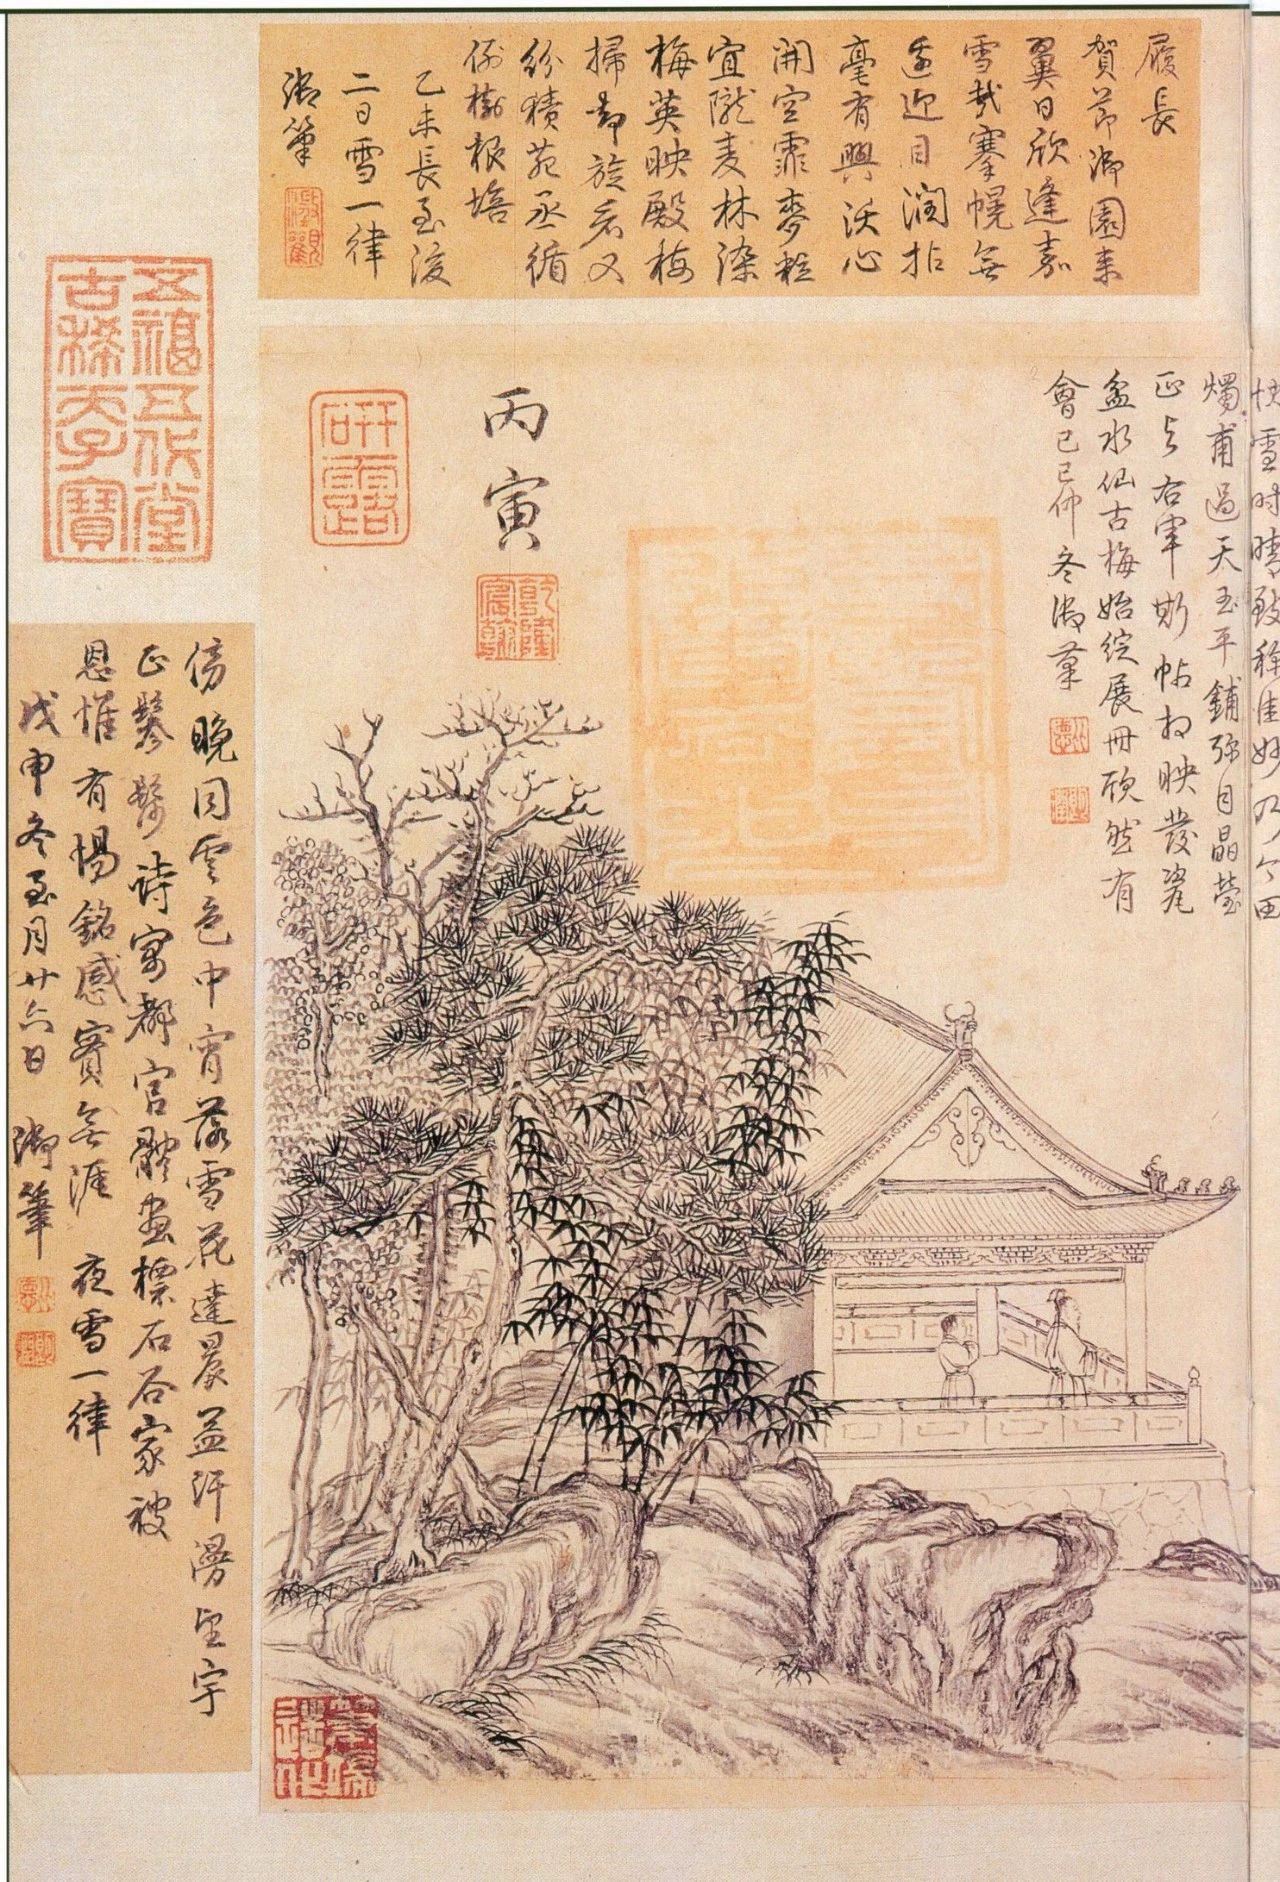 履長
賀節御園来
翼日欣逢嘉
雪哉搴幌無
遥迎目潤拈
毫有興沃心
開空霏麥粒
宜隴麦林染
梅英映殿梅
掃却旋看又
紛積苑丞循
例樹根培
乙未長至後
二日雪一律
御筆
快雪時晴致称佳妙乃今
燭甫過天玉平鋪弥目晶瑩
正与右軍斯帖相映發瓷
盆水仙古梅始綻展冊欣然有
會己巳仲冬御筆
丙寅
乾隆宸翰
研露
五福五代堂
古稀天子寶
傍晚同雲色中宵落雪花達晨益汗漫望宇
正鬖髿詩寓都官體画標石谷家被
恩惟有惕銘感實無涯 夜雪一律
戊申冬至月廿六日 御筆